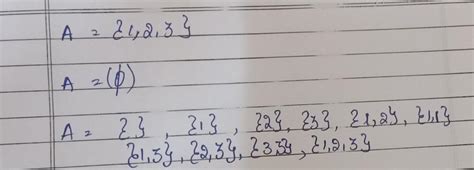 A = {1,2,3}
A = (ϕ)
A = {} , {1} , {2}, {3}, {1,2}, {1,1}
{1,3}, {2,3}, {3,3}, {1,2,3}